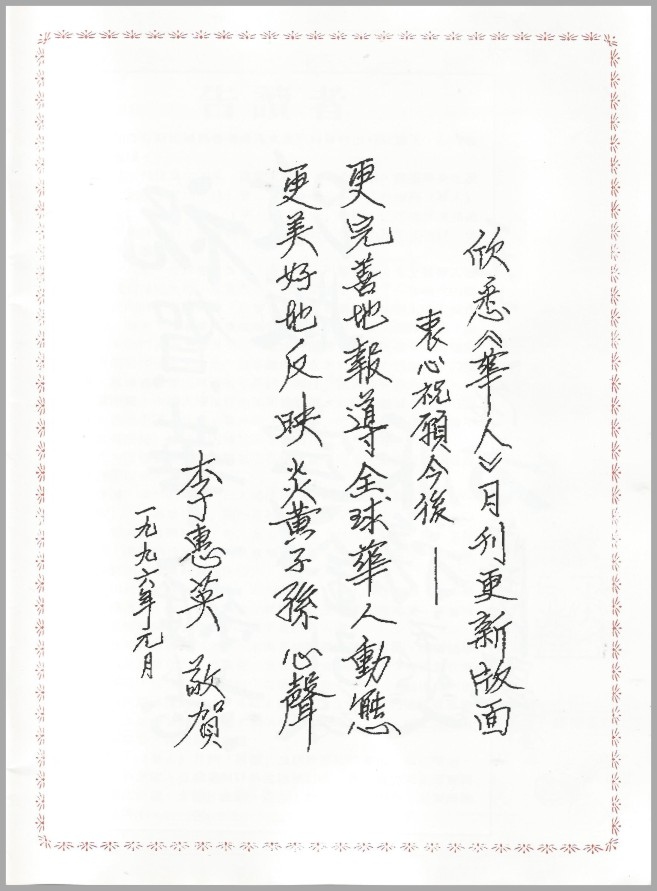 欣悉《華人》月刊更新版面
衷心祝願今後——
更完善地報導全球華人動態
更美好地反映炎黃子孫心聲
李惠英 敬賀
一九九六年元月